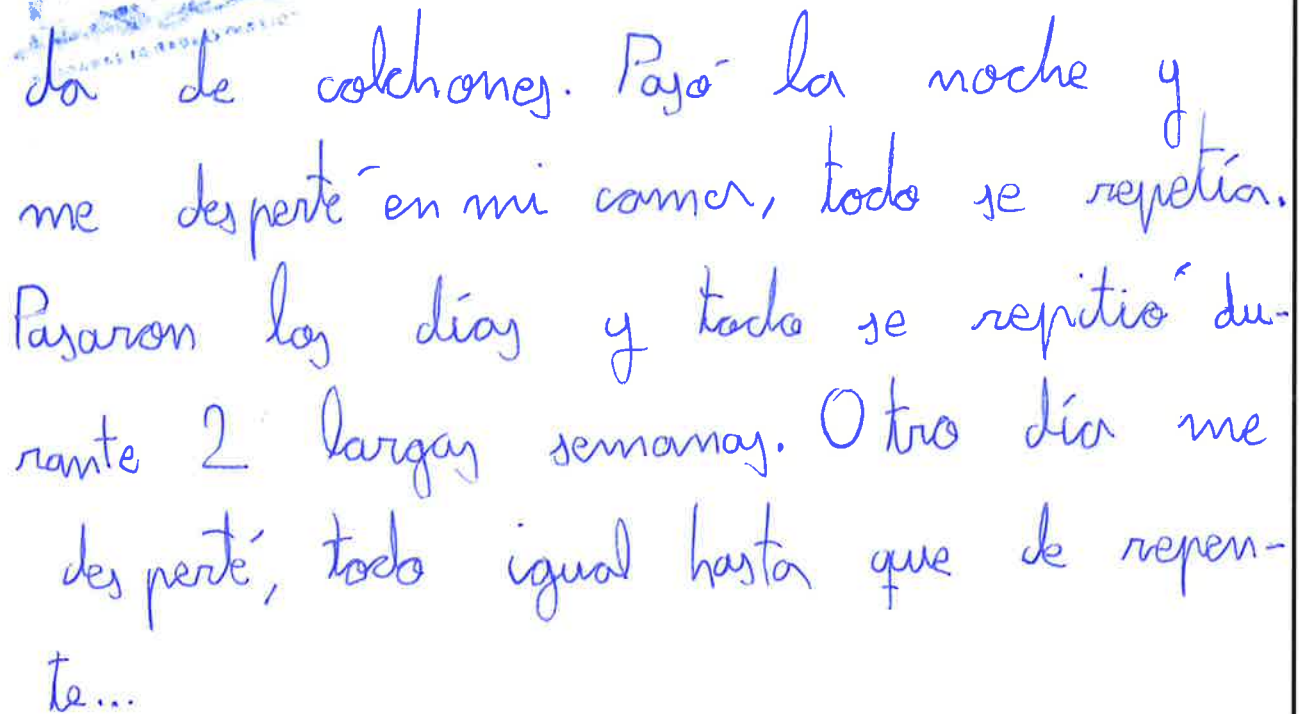 da de colchones. Pasó la noche y
me desperté en mi cama, todo se repetía.
Pasaron los días y todo se repitió du-
rante 2 largas semanas. Otro día me
desperté, todo igual hasta que de repen-
te...